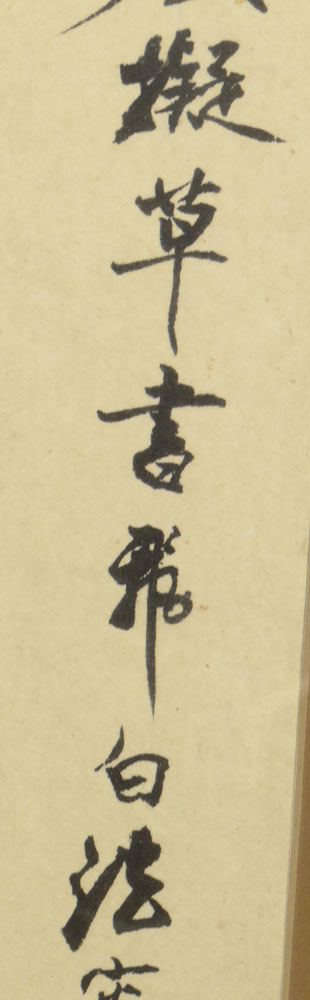 擬草書飛白法